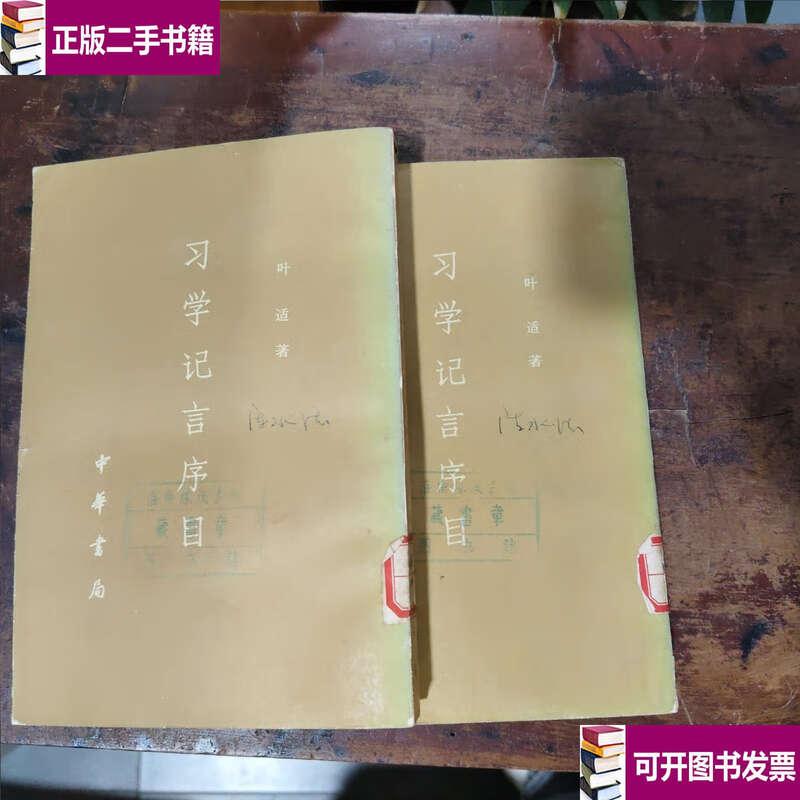 正版二手书籍
习学记言序目
叶适著
中华书局
藏書章
习学记言序目
叶适著
藏書章
可开图书发票